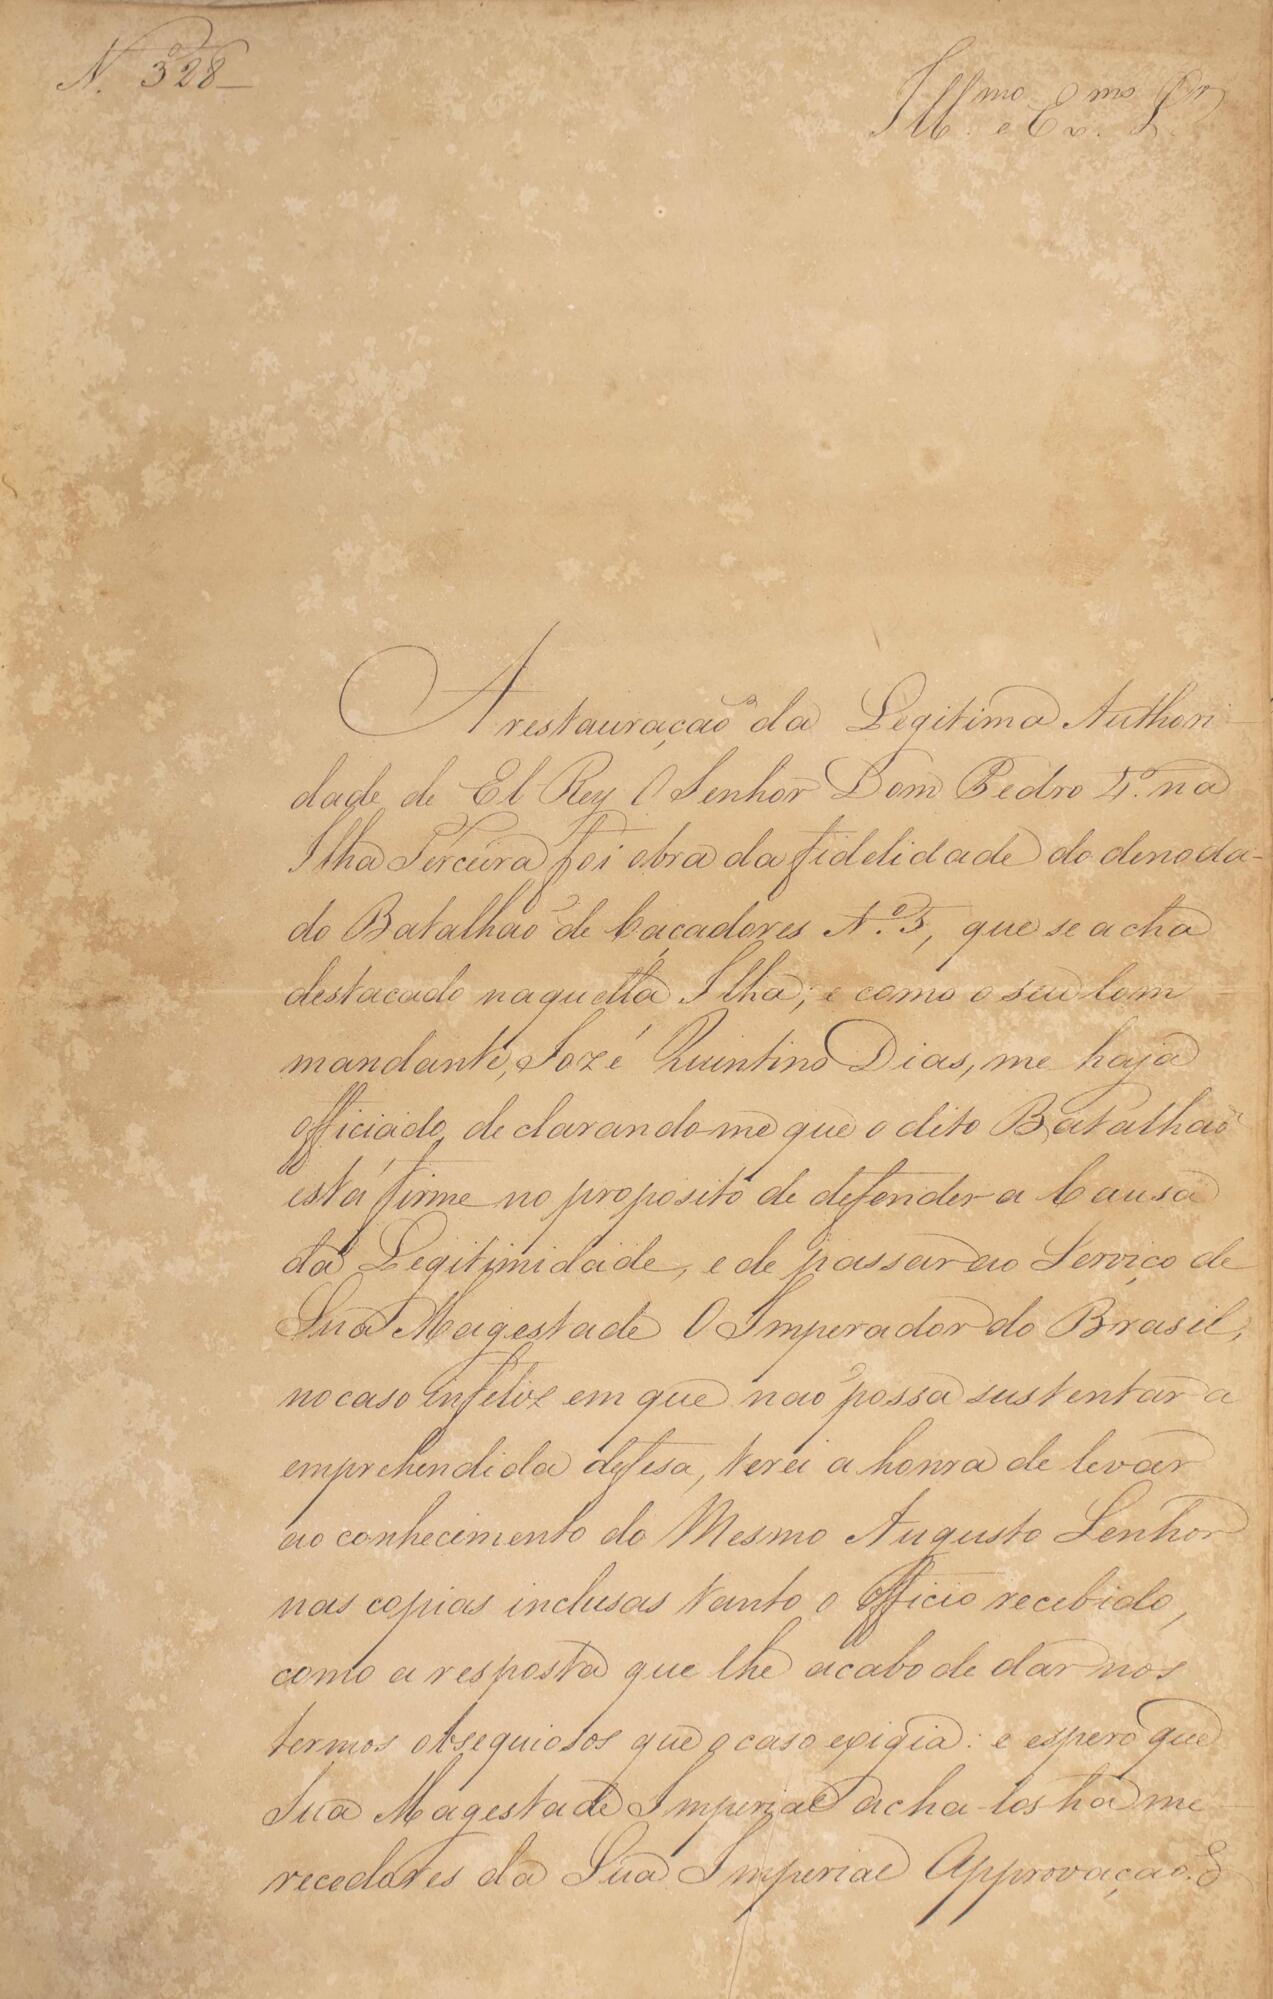 N.º 328
Ill.mo e Ex.mo Sr.
A restauração da Legitima Authori
dade de El Rey O Senhor Dom Pedro 4.º na
Ilha Terceira foi obra da fidelidade do denoda-
do Batalhaõ de Caçadores N.º 5, que se acha
destacado naquella Ilha; e como o seu Com
mandante, Jozé Quintino Dias, me haja
officiado, declarando-me que o dito Batalhaõ
está firme no proposito de defender a Causa
da Legitimidade, e de passar ao Serviço de
Sua Magestade O Imperador do Brasil,
no caso infeliz em que naõ possa sustentar a
emprehendida defesa, terei a honra de levar
ao conhecimento do Mesmo Augusto Senhor
nas copias inclusas tanto o officio recebido,
como a resposta que lhe acabo de dar nos
termos obsequiosos que o caso exigia: e espero que
Sua Magestade Imperial acha-los há me
recedores da Sua Imperial Approvaçaõ. E